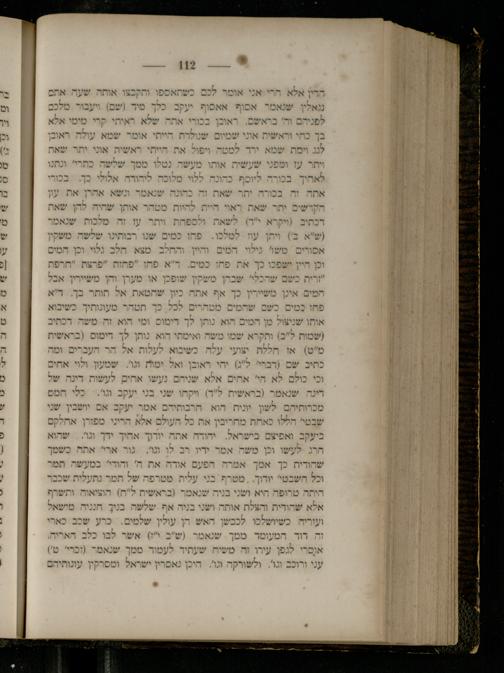 — 112 —
הדין אלא הרי אני אומר לכם כשתאספו ותקבצו אותה שעה אתם
נגאלין שנאמר אסוף אאסוף יעקב כלך מיד (שם) ויעבור מלכם
לפניהם וה׳ בראשם. ראובן בכורי אתה שלא ראיתי קרי מימי אלא
בך כחי וראשית אוני שמיום שנולדת הייתי אומר שמא עולה ראובן
לגג וימת שמא ירד למטה ויפול את הייתי ראשית אוני יתר שאת
ויתר עז ומפני שעשית אותו מעשה נטלו ממך שלשה כתרי׳ ונתנו
לאחיך בכורה ליוסף כהונה ללוי מלוכה ליהודה אלולי כך. בכורי
אתה זה בכורה יתר שאת זה כהונה שנאמר ונשא אהרן את עון
הקדשים יתר שאת ראוי היית להיות מטהר אותן שהיה להן שאת
הכתיב (ויקרא י״ד) לשאת ולספחת ויתר עז זה מלכות שנאמר
(ש״א ב׳) ויתן עוז למלכו. פחז כמים שנו רבותינו שלשה משקין
אסורים משו׳ גילוי המים והיין והחלב מצא חלב גלוי וכן המים
וכן היין ישפכו כך את פחז כמים. ר״א פחז ״פחזת ״פרצת ״חרפת
״זרית כשם שהכלי׳ שבהן משקין שופכן או מערן והן משיירין אבל
המים אינן משיירין כך אף אתה כיון שחטאת אל תותר בך. ד״א
פחז כמים כשם שהמים מטהרים לכל כך תטהר מעונותיך כשיבוא
אותו שניצול מן המים הוא נותן לך דימוס ומי הוא זה משה דכתיב
(שמות ב״ב) ותקרא שמו משה ואימתי הוא נותן לך דימוס (בראשית
מ״ט) אז חללת יצועי עלה כשיבוא לעלות אל הר העברים ומה
כתיב שם (דברי׳ ל״ג) יחי ראובן ואל ימות וגו׳. שמעון ולוי אחים
וכי כולם לא הי׳ אחים אלא שניהם נעשו אחים לעשות דינה של
דינה שנאמר (בראשית ל״ד) ויקחו שני בני יעקב וגו׳. כלי חמס
מכרותיהם לשון יונית הוא הרבותיהם אמר יעקב אם יושבין שני
שבטי׳ הללו כאחת מחריבין את כל העולם אלא הריני מפזרן אחלקם
ביעקב ואפיצם בישראל. יהודה אתה יודוך אחיך ידך וגו׳. שהוא
הרג לעשו וכן משה אמר ידיו רב לו וגו׳. גור ארי׳ אתה כשמך
שהודית כך אמך אמרה הפעם אודה את ה׳ והודי׳ במעשה תמר
וכל השבטי׳ יודוך. מטרף בני עלית מטרפה של תמר נתעלות שכבר
היתה טרופה היא ושני בניה שנאמר (בראשית ל״ח) הוציאוה ותשרף
אלא שהודית והצלת אותה ושני בניה אף שלשה בניך חנניה מישאל
ועזריה כשיושלכו לכבשן האש הן עולין שלמים. כרע שכב כארי
זה דוד העומד ממך שנאמר (ש״ב י״ז) אשר לבו כלב האריה.
אוסרי לגפן עירו זה משיח שעתיד לעמוד ממך שנאמר (זכרי׳ ט׳)
עני ורוכב וגו׳. ולשורקה וגו׳. היכן נאסרין ישראל ומסרקין עונותיהם